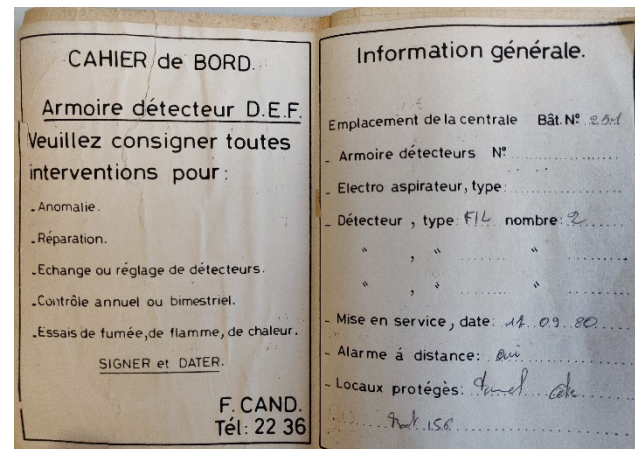 CAHIER de BORD.
Armoire détecteur D.E.F.
Veuillez consigner toutes
interventions pour:
- Anomalie.
- Réparation.
- Echange ou réglage de détecteurs.
- Contrôle annuel ou bimestriel.
- Essais de fumée, de flamme, de chaleur.
SIGNER et DATER.
F. CAND.
Tél: 22 36
Information générale.
Emplacement de la centrale Bât. Nº
- Armoire détecteurs Nº
- Electro aspirateur, type:
- Détecteur, type: F/L nombre: 2
" , " "
" , " "
- Mise en service, date: 09.80
- Alarme á distance: oui
- Locaux protégès: